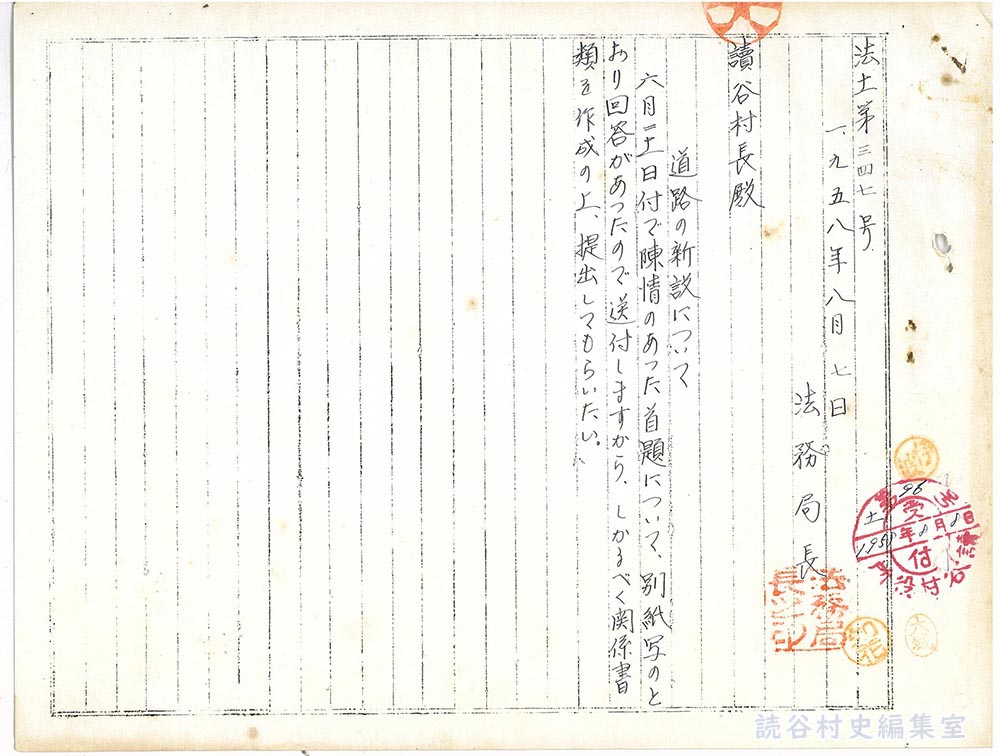 法土第三四七号
一九五八年八月七日
法務局長
讀谷村長殿
道路の新設について
六月二十一日付で陳情のあつた首題について、別紙写のと
おり回答があつたので送付しますから、しかるべく関係書
類を作成の上、提出してもらいたい。
法務局
長之印
受付
讀谷村役所
読谷村史編集室